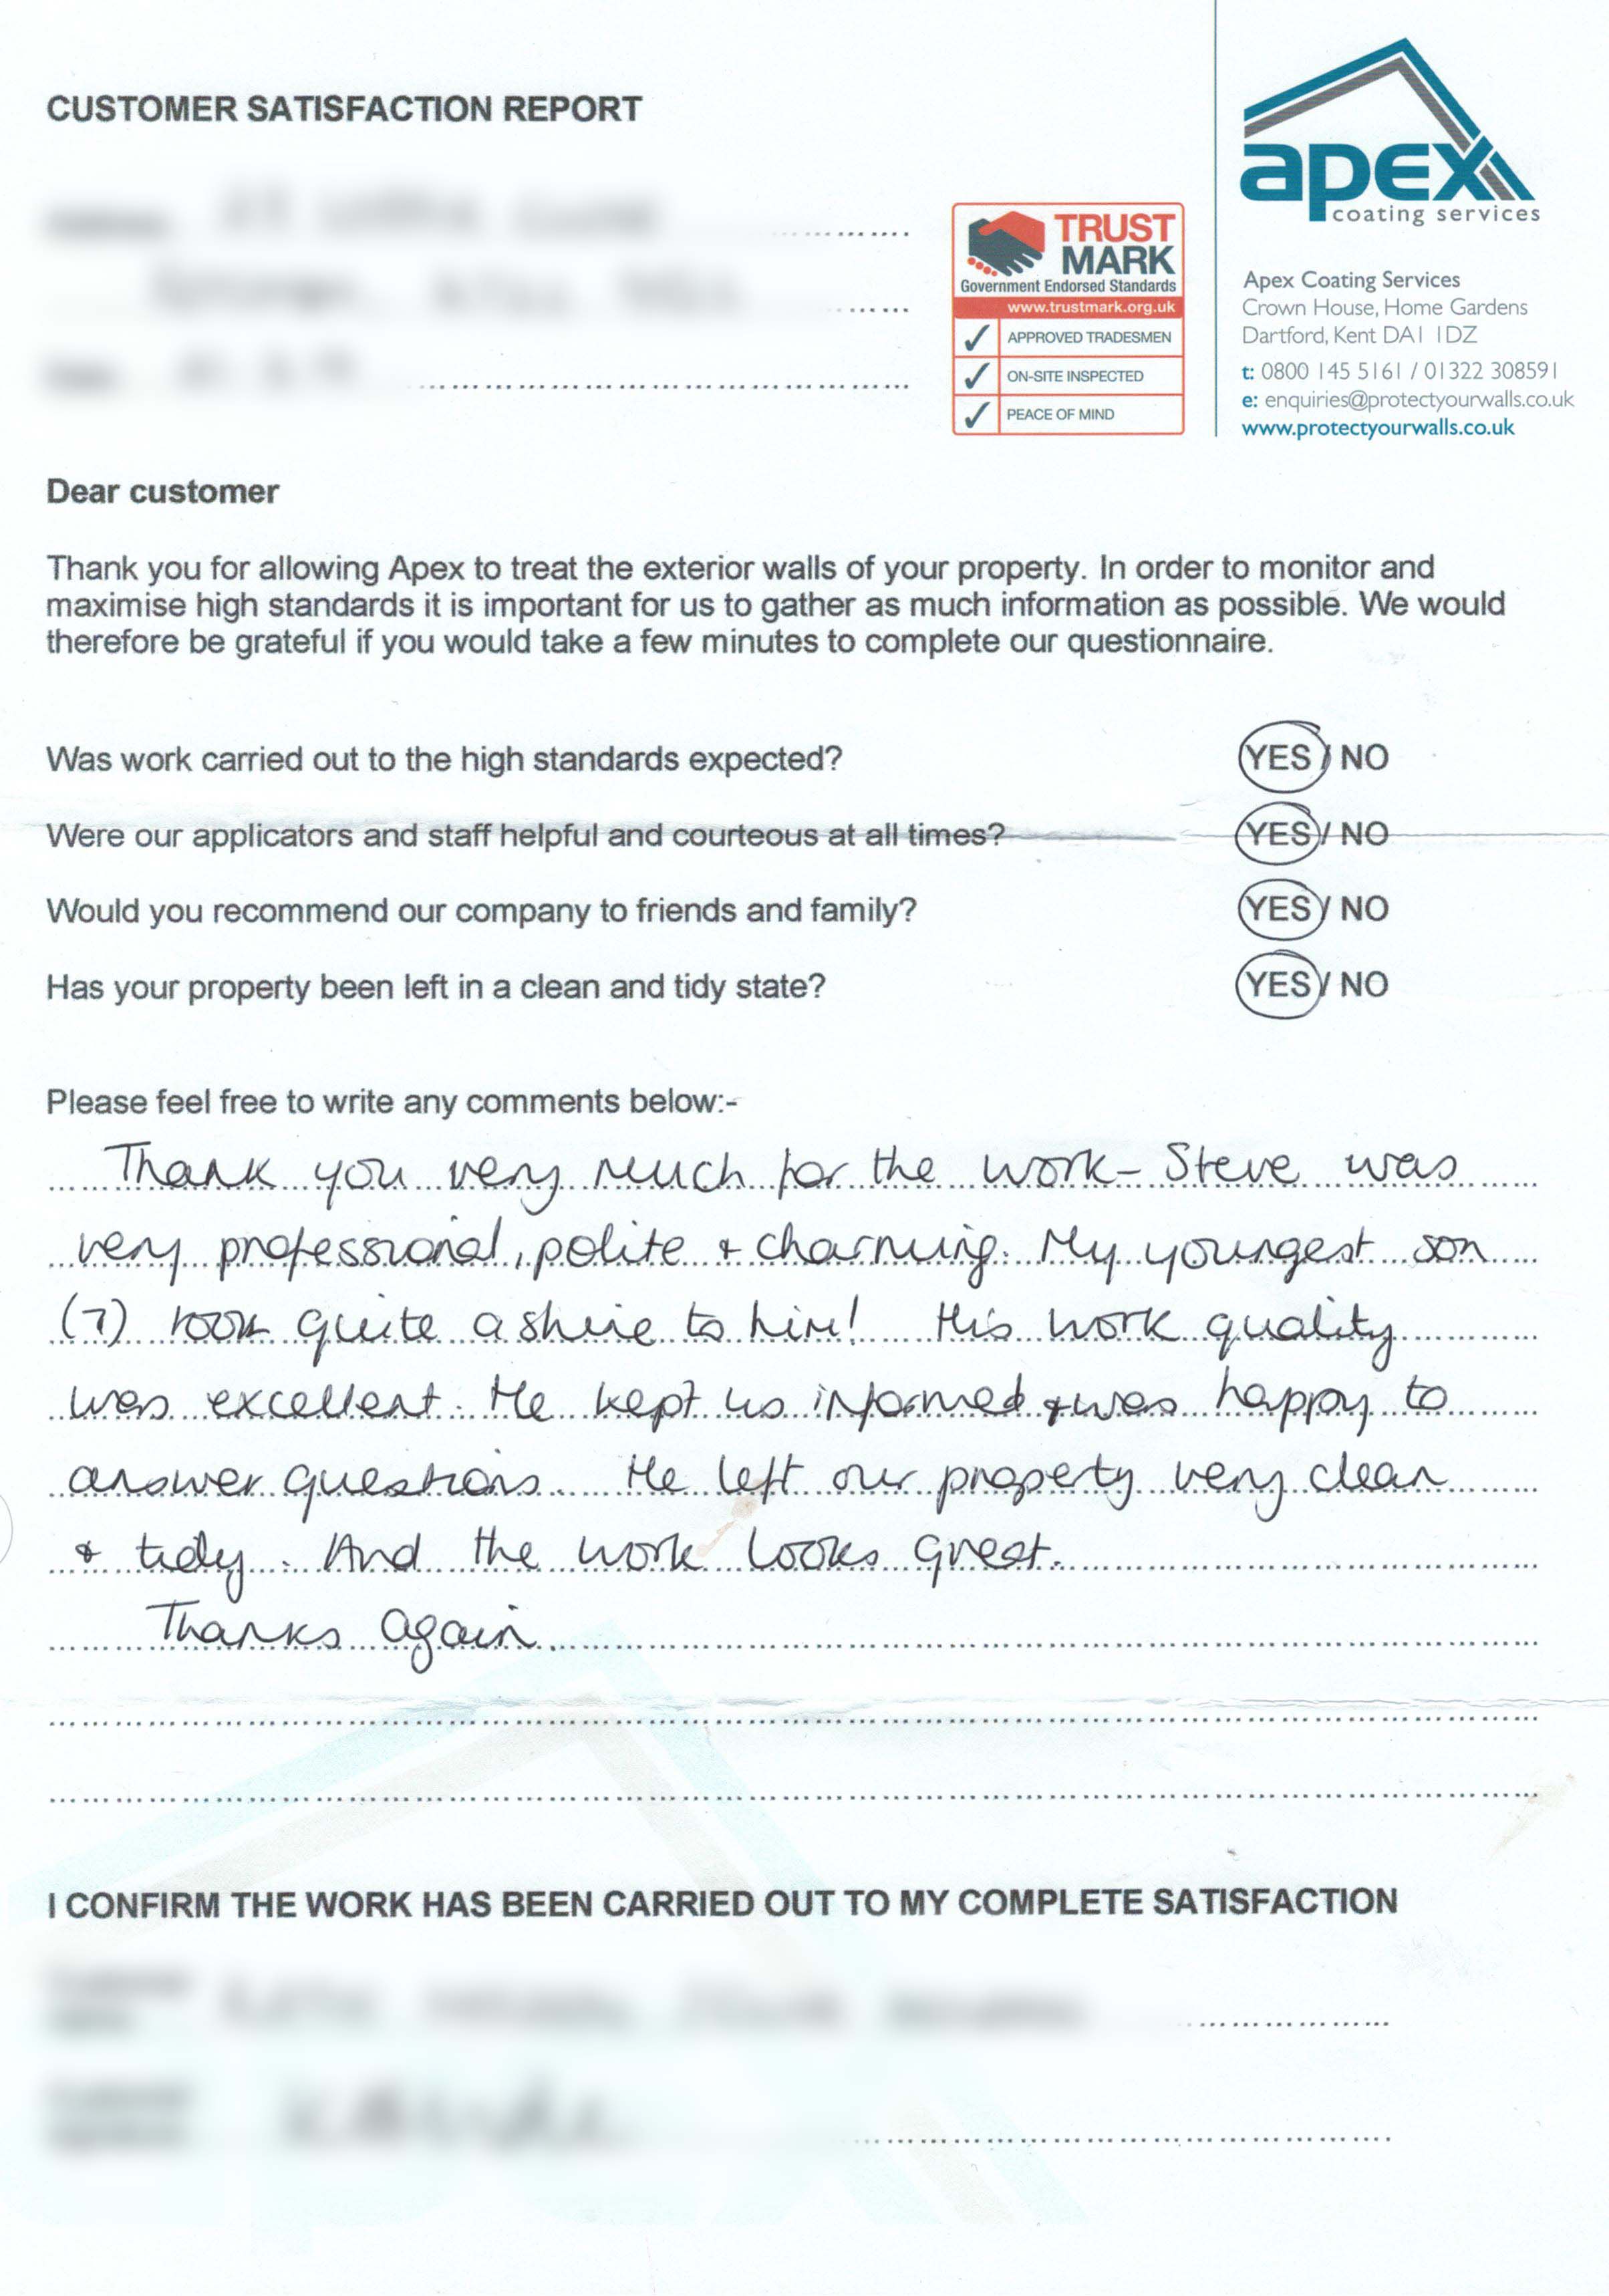 CUSTOMER SATISFACTION REPORT
apex
coating services
TRUST
MARK
Government Endorsed Standards
www.trustmark.org.uk
APPROVED TRADESMEN
ON-SITE INSPECTED
PEACE OF MIND
Apex Coating Services
Crown House, Home Gardens
Dartford, Kent DA1 1DZ
t: 0800 145 5161 / 01322 308591
e: enquiries@protectyourwalls.co.uk
www.protectyourwalls.co.uk
Dear customer
Thank you for allowing Apex to treat the exterior walls of your property. In order to monitor and
maximise high standards it is important for us to gather as much information as possible. We would
therefore be grateful if you would take a few minutes to complete our questionnaire.
Was work carried out to the high standards expected? YES / NO
Were our applicators and staff helpful and courteous at all times? YES / NO
Would you recommend our company to friends and family? YES / NO
Has your property been left in a clean and tidy state? YES / NO
Please feel free to write any comments below:-
Thank you very much for the work - Steve was
very professional, polite + charming. My youngest son
(7) took quite a shine to him! His work quality
was excellent. He kept us informed + was happy to
answer questions. He left our property very clean
+ tidy. And the work looks great.
Thanks again.
I CONFIRM THE WORK HAS BEEN CARRIED OUT TO MY COMPLETE SATISFACTION